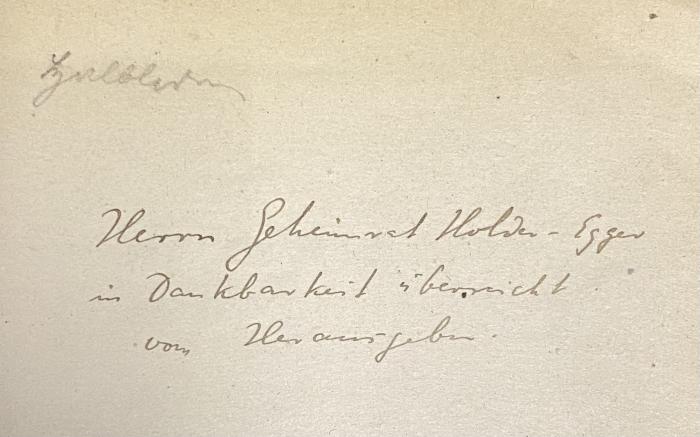 Halbleder
Herrn Geheimrat Holder-Egger
in Dankbarkeit überreicht.
vom Herausgeber.